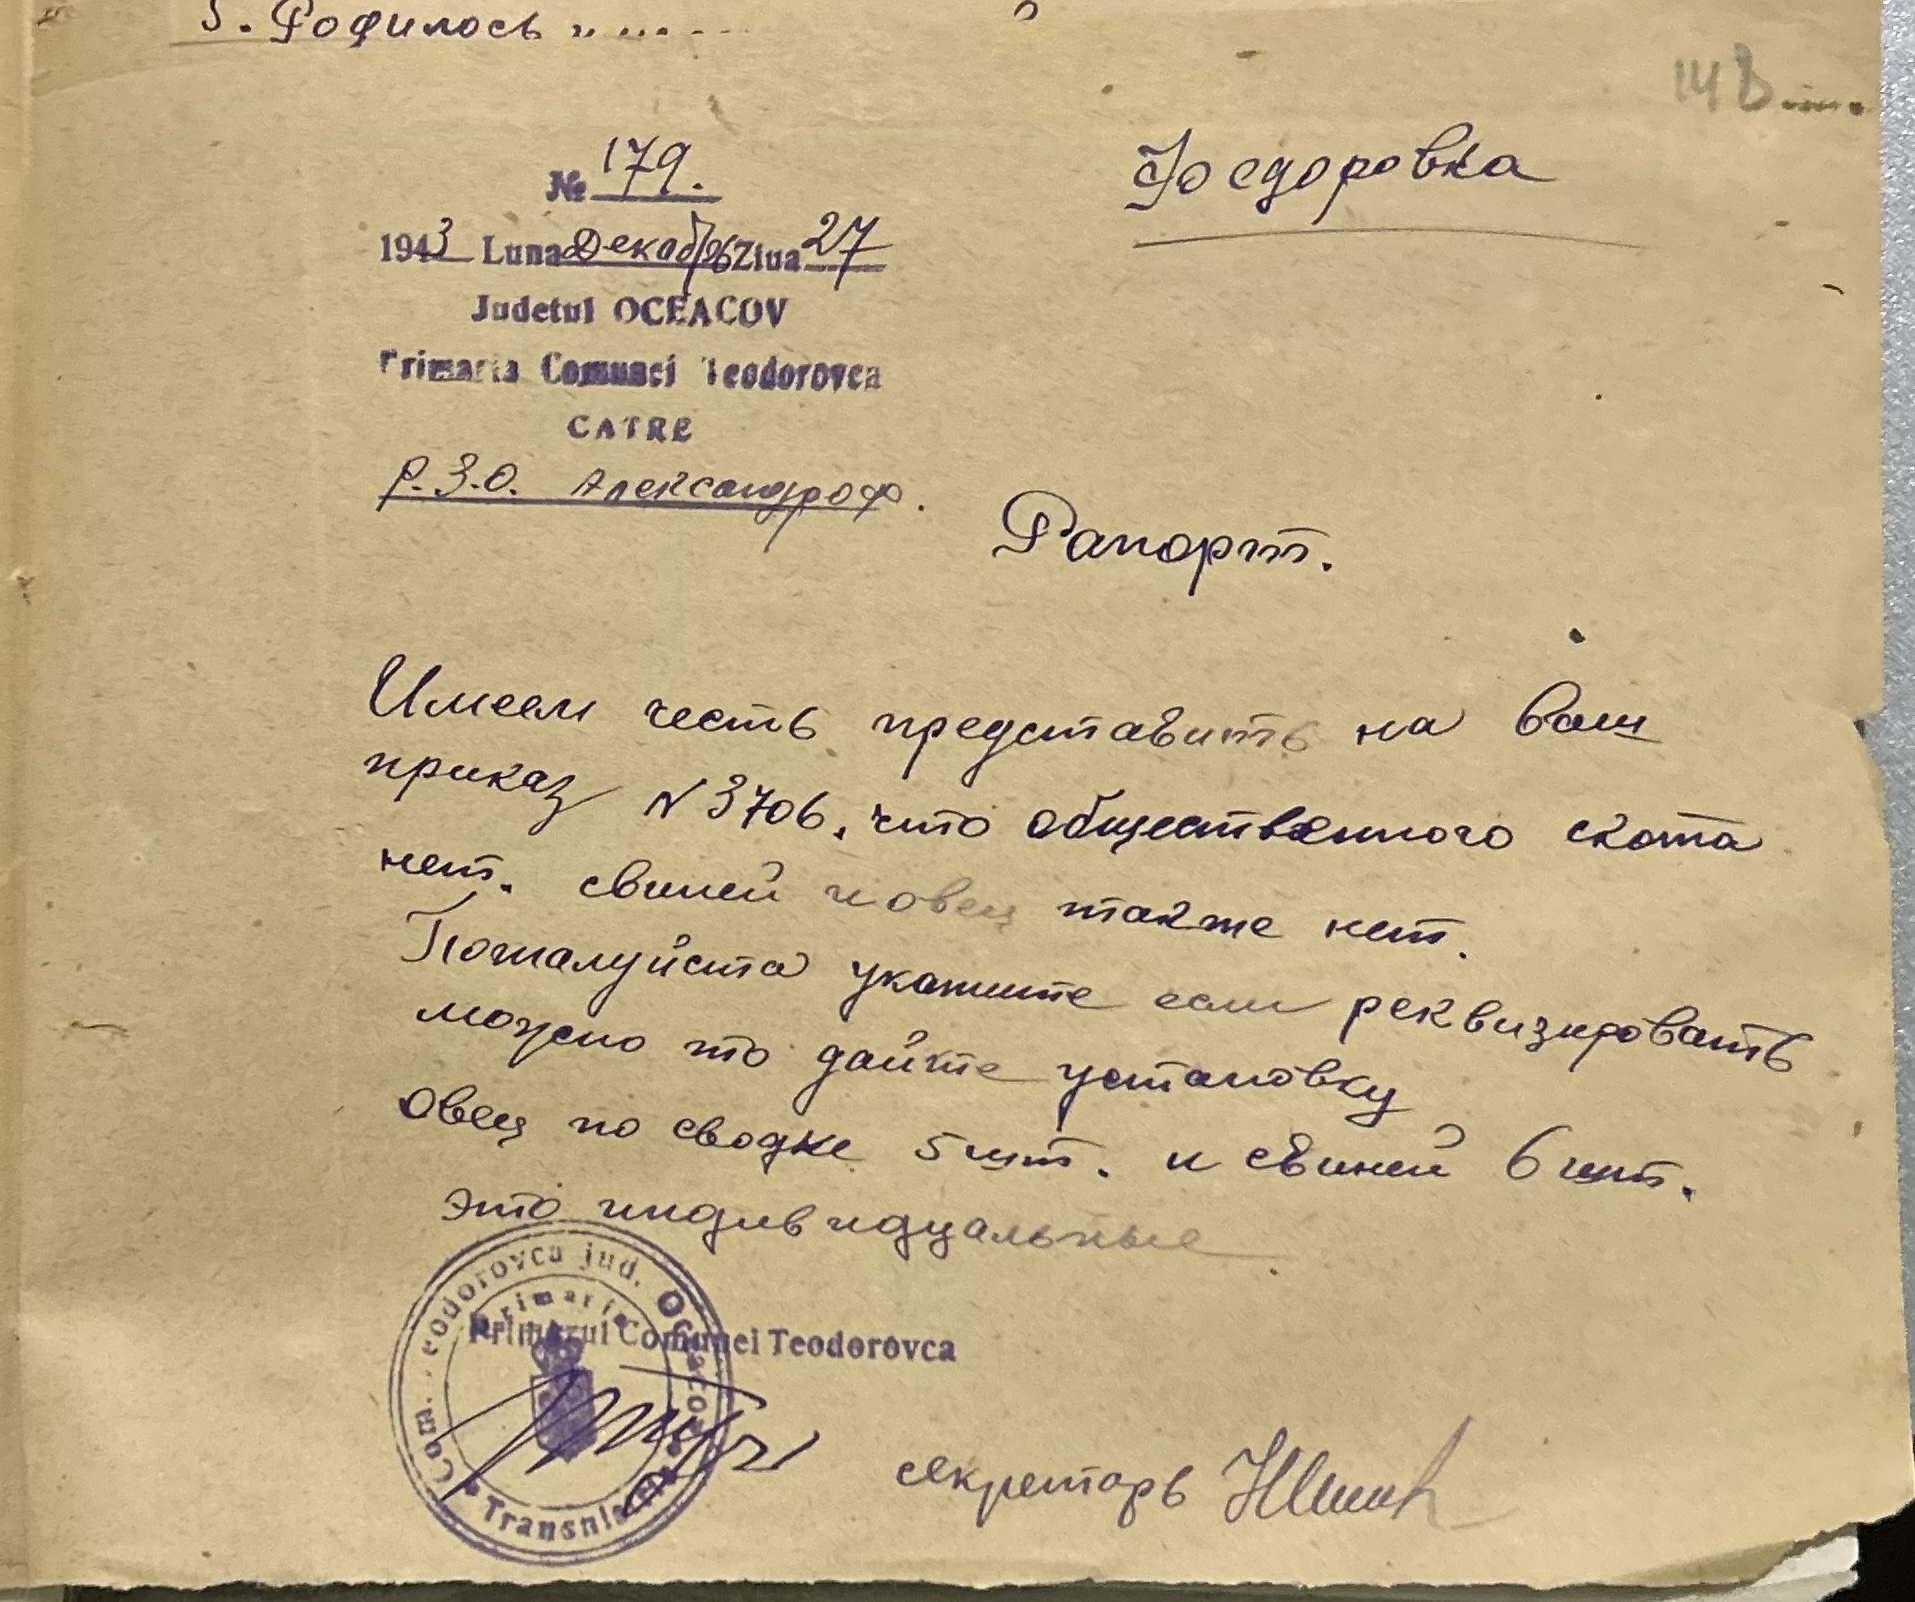 5. Родилось " " ....
№ 179.
Фосдоровка
1943 Luna Декабрь Ziua 27
Judetul OCEACOV
Primaria Comunei Teodorovca
CATRE
Р.З.О. Александроф.
Рапорт.
Имеем честь представить на ваш
приказ N 3706, что общественного скота
нет. свиней и овец также нет.
Пожалуйста укажите если реквизировать
можно то дайте установку
Овец по сводке 5 шт. и свиней 6 шт.
это индивидуальные
Primarul Comunei Teodorovca
Com. Teodorovca jud. Oceacov
Primaria
Transnistria
секреторь